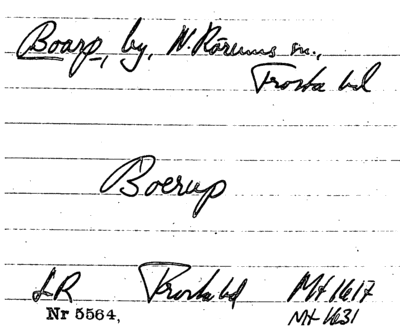 Boarp, by, N. Rörums sn.,
Frosta hd
Boerup
LR Frosta hd Mt 1617
Nr 5564, Mt 1631